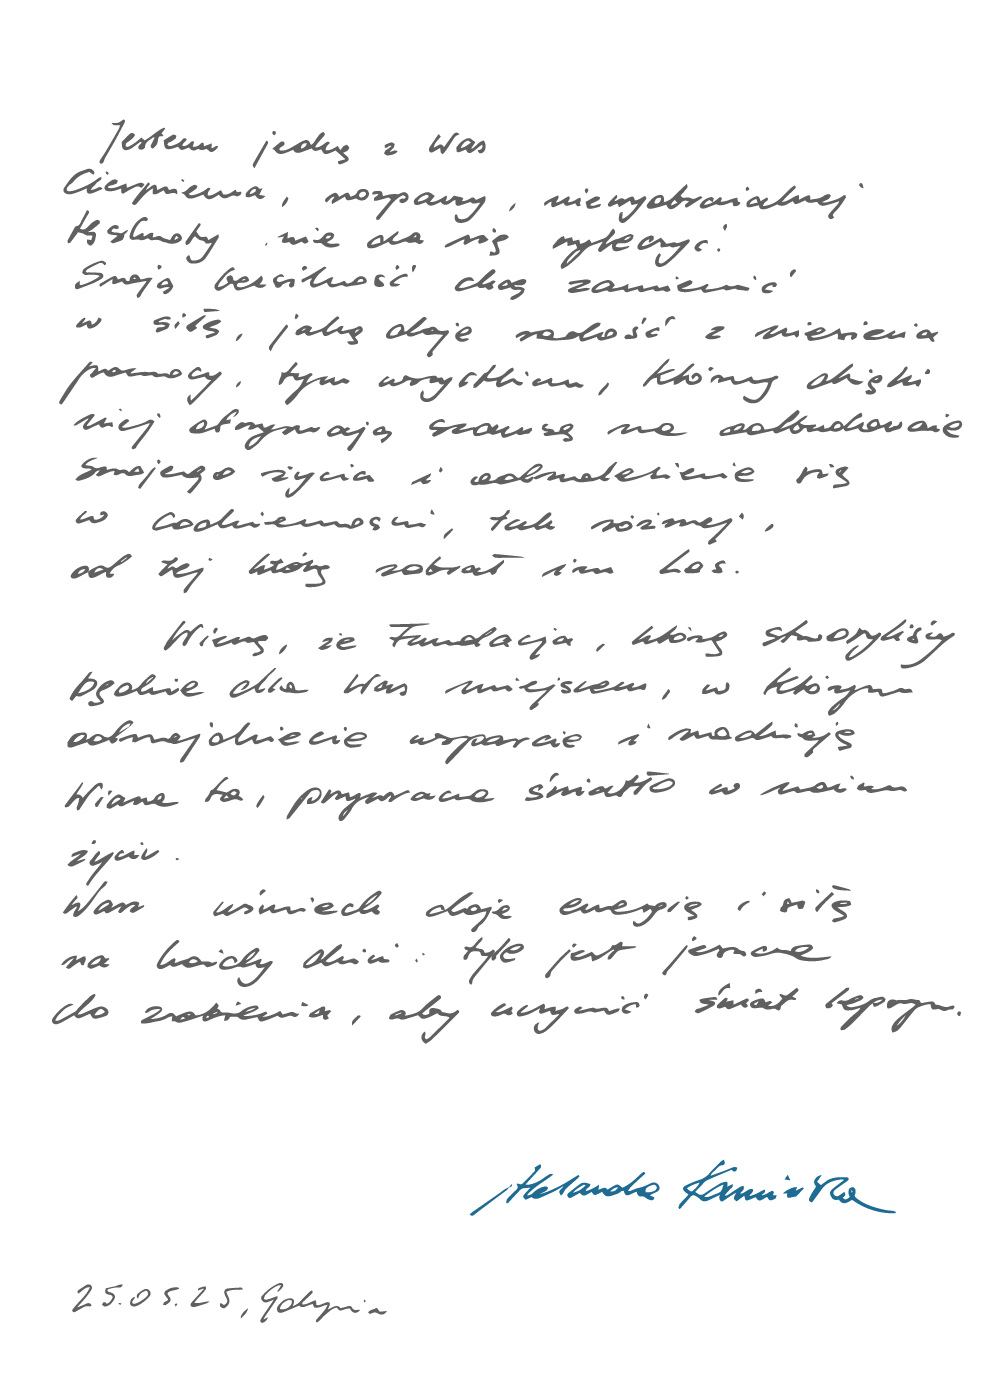 Jestem jedną z Was
Cierpienia, rozpaczy, niewyobrażalnej
tęsknoty nie da się wyleczyć.
Swoją bezsilność chcę zamienić
w siłę, jaką daje radość z niesienia
pomocy, tym wszystkim, którzy dzięki
niej otrzymają szansę na odbudowanie
swojego życia i odnalezienie się
w codzienności, tak różnej,
od tej którą zabrał im Los.
Wierzę, że Fundacja, którą stworzyliśmy
będzie dla Was miejscem, w którym
odnajdziecie wsparcie i nadzieję
Wiara ta, przywraca światło w moim
życiu.
Wasz uśmiech daje energię i siłę
na każdy dzień tyle jest jeszcze
do zrobienia, aby uczynić świat lepszym.
Aleksandra Kamińska
25.05.25, Gdynia